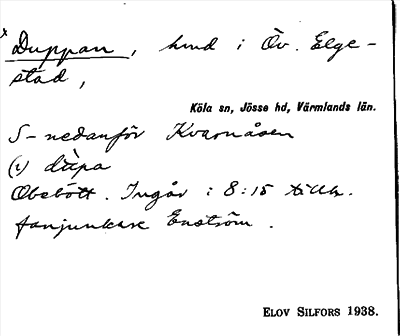 x Duppan, hmd i Öv. Elge-
stad,
Köla sn, Jösse hd, Värmlands län.
S-nedanför Kvarnåsen
(i) dùpa
Obebott. Ingår i 8:15 tillh.
fanjunkare Enström.
ELOV SILFORS 1938.